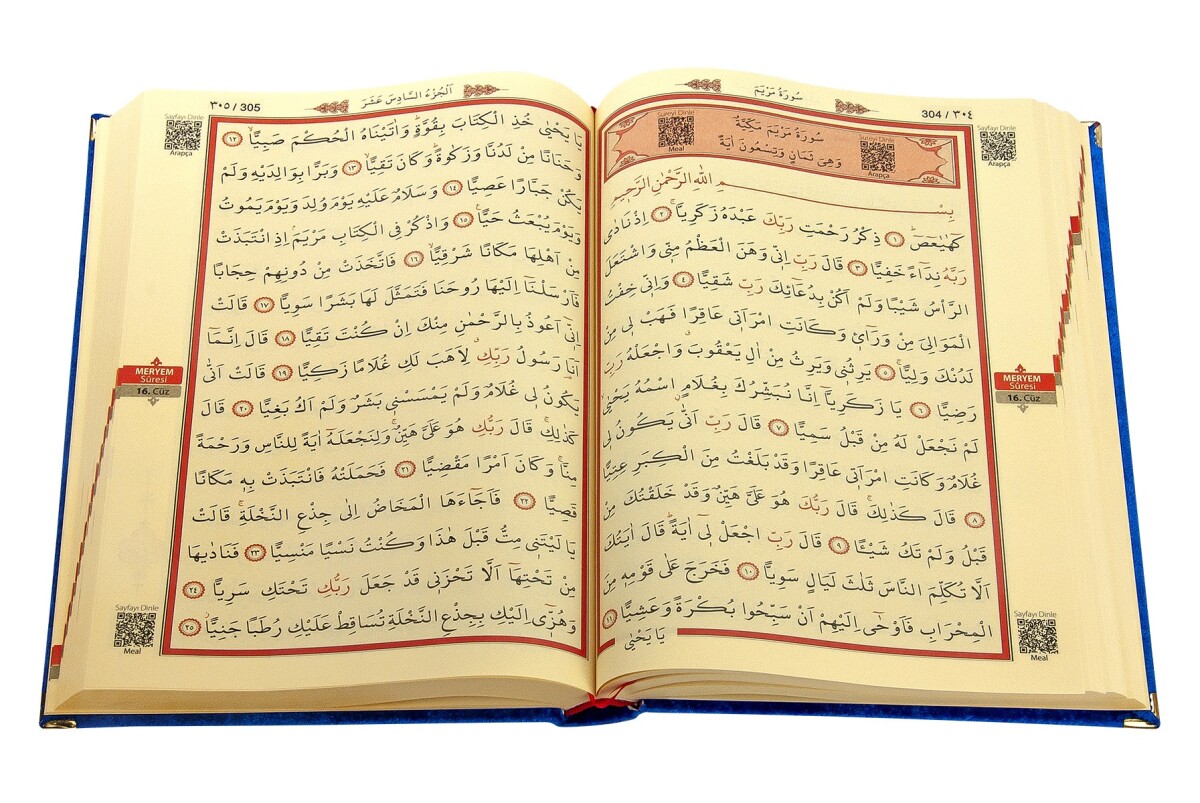 304 / ٣٠٤
سُورَةُ مَرْيَمَ
Sayfayı Dinle
Arapça
Sureyi Dinle
Meal
سُورَةُ مَرْيَمَ مَكِّيَّةٌ
وَهِيَ ثَمَانٍ وَتِسْعُونَ اٰيَةً
Sureyi Dinle
Arapça
بِسْــــمِ اللّٰهِ الرَّحْمٰنِ الرَّحٖيمِ
كٓهٰيٰعٓصٓ ﴿١﴾ ذِكْرُ رَحْمَتِ رَبِّكَ عَبْدَهُ زَكَرِيَّاۚ ﴿٢﴾ اِذْ نَادٰى
رَبَّهُ نِدَٓاءً خَفِيًّا ﴿٣﴾ قَالَ رَبِّ اِنّٖي وَهَنَ الْعَظْمُ مِنّٖي وَاشْتَعَلَ
الرَّأْسُ شَيْبًا وَلَمْ اَكُنْ بِدُعَٓائِكَ رَبِّ شَقِيًّا ﴿٤﴾ وَاِنّٖي خِفْتُ
الْمَوَالِيَ مِنْ وَرَٓائٖي وَكَانَتِ امْرَاَتٖي عَاقِرًا فَهَبْ لٖي مِنْ
لَدُنْكَ وَلِيًّاۙ ﴿٥﴾ يَرِثُنٖي وَيَرِثُ مِنْ اٰلِ يَعْقُوبَۗ وَاجْعَلْهُ رَبِّ
رَضِيًّا ﴿٦﴾ يَا زَكَرِيَّٓا اِنَّا نُبَشِّرُكَ بِغُلَامٍ اسْمُهُ يَحْيٰىۙ
لَمْ نَجْعَلْ لَهُ مِنْ قَبْلُ سَمِيًّا ﴿٧﴾ قَالَ رَبِّ اَنّٰى يَكُونُ لٖي
غُلَامٌ وَكَانَتِ امْرَاَتٖي عَاقِرًا وَقَدْ بَلَغْتُ مِنَ الْكِبَرِ عِتِيًّا
﴿٨﴾ قَالَ كَذٰلِكَۚ قَالَ رَبُّكَ هُوَ عَلَيَّ هَيِّنٌ وَقَدْ خَلَقْتُكَ مِنْ
قَبْلُ وَلَمْ تَكُ شَيْـًٔا ﴿٩﴾ قَالَ رَبِّ اجْعَلْ لٖٓي اٰيَةًۜ قَالَ اٰيَتُكَ
اَلَّا تُكَلِّمَ النَّاسَ ثَلٰثَ لَيَالٍ سَوِيًّا ﴿١٠﴾ فَخَرَجَ عَلٰى قَوْمِهٖ مِنَ
الْمِحْرَابِ فَاَوْحٰٓى اِلَيْهِمْ اَنْ سَبِّحُوا بُكْرَةً وَعَشِيًّا ﴿١١﴾
يَا يَحْيٰى
MERYEM
Sûresi
16. Cüz
Sayfayı Dinle
Meal
٣٠٥ / 305
اَلْجُزْءُ السَّادِسَ عَشَرَ
Sayfayı Dinle
Arapça
يَا يَحْيٰى خُذِ الْكِتَابَ بِقُوَّةٍۜ وَاٰتَيْنَاهُ الْحُكْمَ صَبِيًّاۙ ﴿١٢﴾
وَحَنَانًا مِنْ لَدُنَّا وَزَكٰوةًۜ وَكَانَ تَقِيًّاۙ ﴿١٣﴾ وَبَرًّا بِوَالِدَيْهِ وَلَمْ
يَكُنْ جَبَّارًا عَصِيًّا ﴿١٤﴾ وَسَلَامٌ عَلَيْهِ يَوْمَ وُلِدَ وَيَوْمَ يَمُوتُ
وَيَوْمَ يُبْعَثُ حَيًّا۟ ﴿١٥﴾ وَاذْكُرْ فِي الْكِتَابِ مَرْيَمَۢ اِذِ انْتَبَذَتْ
مِنْ اَهْلِهَا مَكَانًا شَرْقِيًّاۙ ﴿١٦﴾ فَاتَّخَذَتْ مِنْ دُونِهِمْ حِجَابًا
فَاَرْسَلْنَٓا اِلَيْهَا رُوحَنَا فَتَمَثَّلَ لَهَا بَشَرًا سَوِيًّا ﴿١٧﴾ قَالَتْ
اِنّٖٓي اَعُوذُ بِالرَّحْمٰنِ مِنْكَ اِنْ كُنْتَ تَقِيًّا ﴿١٨﴾ قَالَ اِنَّمَٓا
اَنَا۬ رَسُولُ رَبِّكِۗ لِاَهَبَ لَكِ غُلَامًا زَكِيًّا ﴿١٩﴾ قَالَتْ اَنّٰى
يَكُونُ لٖي غُلَامٌ وَلَمْ يَمْسَسْنٖي بَشَرٌ وَلَمْ اَكُ بَغِيًّا ﴿٢٠﴾ قَالَ
كَذٰلِكِۚ قَالَ رَبُّكِ هُوَ عَلَيَّ هَيِّنٌۚ وَلِنَجْعَلَهُٓ اٰيَةً لِلنَّاسِ وَرَحْمَةً
مِنَّاۚ وَكَانَ اَمْرًا مَقْضِيًّا ﴿٢١﴾ فَحَمَلَتْهُ فَانْتَبَذَتْ بِهٖ مَكَانًا
قَصِيًّا ﴿٢٢﴾ فَاَجَٓاءَهَا الْمَخَاضُ اِلٰى جِذْعِ النَّخْلَةِۚ قَالَتْ
يَا لَيْتَنٖي مِتُّ قَبْلَ هٰذَا وَكُنْتُ نَسْيًا مَنْسِيًّا ﴿٢٣﴾ فَنَادٰيهَا
مِنْ تَحْتِهَٓا اَلَّا تَحْزَنٖي قَدْ جَعَلَ رَبُّكِ تَحْتَكِ سَرِيًّا ﴿٢٤﴾
وَهُزّٖٓي اِلَيْكِ بِجِذْعِ النَّخْلَةِ تُسَاقِطْ عَلَيْكِ رُطَبًا جَنِيًّاۘ ﴿٢٥﴾
MERYEM
Sûresi
16. Cüz
Sayfayı Dinle
Meal